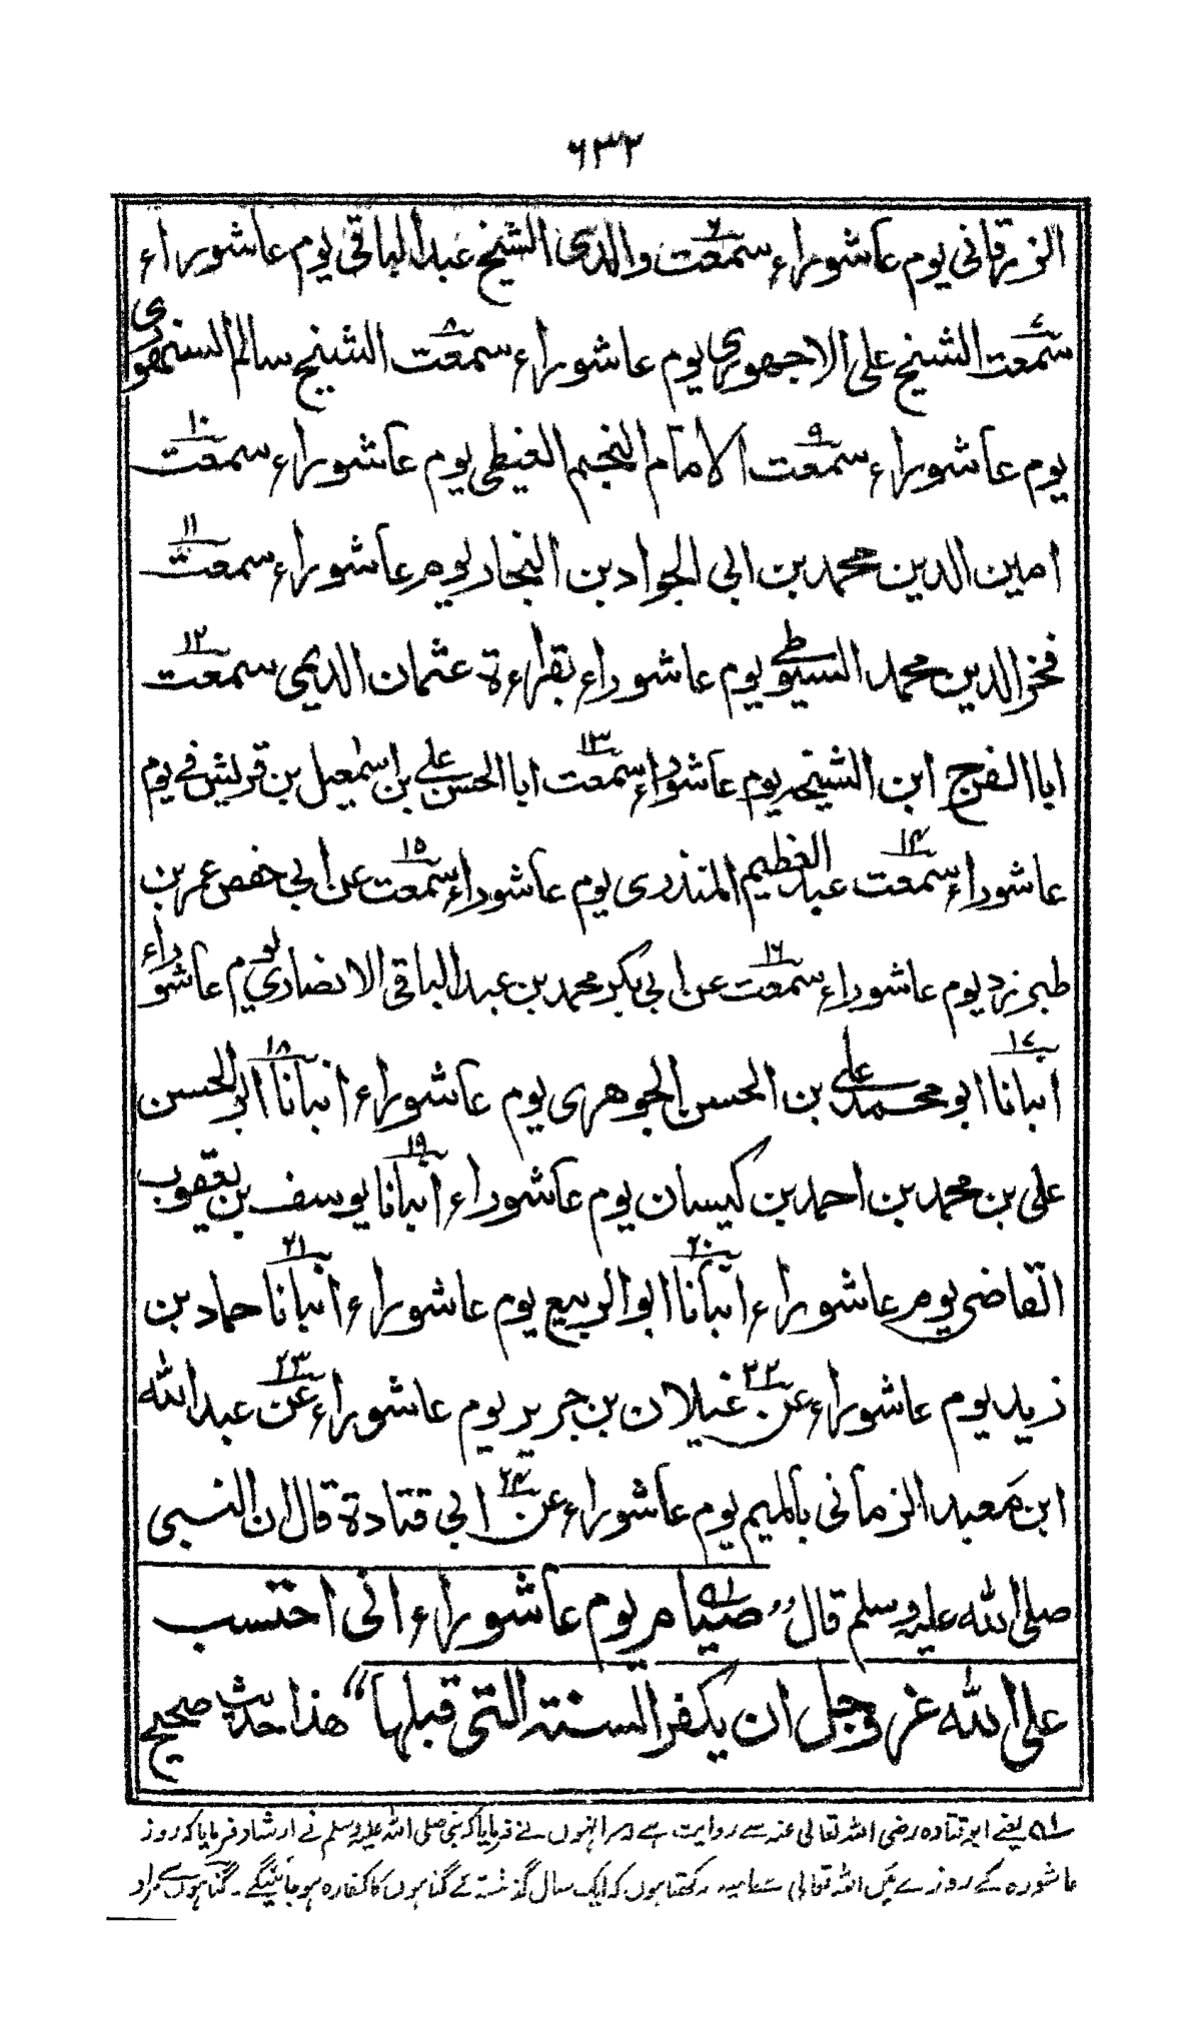 ٦٣٢
الزرقانی یوم عاشوراء سمعت ۶ والدی الشیخ عبد الباقی یوم عاشوراء
سمعت ۷ الشیخ علی الاجھوری یوم عاشوراء سمعت ۸ الشیخ سالم السنھوری
یوم عاشوراء سمعت ۹ الامام النجم الغیطی یوم عاشوراء سمعت ۱۰
امین الدین محمد بن ابی الجواد بن النجار یوم عاشوراء سمعت ۱۱
فخر الدین محمد السیوطی یوم عاشوراء بقراءة عثمان الدیمی سمعت ۱۲
ابا الفرج ابن الشیخہ یوم عاشوراء سمعت ۱۳ ابا الحسن علی بن اسمٰعیل بن قریش فی یوم
عاشوراء سمعت ۱۴ عبد العظیم المنذری یوم عاشوراء سمعت ۱۵ عن ابی حفص عمر بن
طبرزد یوم عاشوراء سمعت ۱۶ عن ابی بکر محمد بن عبد الباقی الانصاری یوم عاشوراء
انبانا ۱۷ ابو محمد علی بن الحسن الجوھری یوم عاشوراء انبانا ۱۸ ابو الحسن
علی بن محمد بن احمد بن کیسان یوم عاشوراء انبانا ۱۹ یوسف بن یعقوب
القاضی یوم عاشوراء انبانا ۲۰ ابو الربیع یوم عاشوراء انبانا ۲۱ حماد بن
زید یوم عاشوراء عن ۲۲ غیلان بن جریر یوم عاشوراء عن ۲۳ عبد اللہ
ابن معبد الزمانی بالمیم یوم عاشوراء عن ۲۴ ابی قتادة قال ان النبی
صلی اللہ علیہ وسلم قال ”صیام ۵۱ یوم عاشوراء انی احتسب
علی اللہ عز وجل ان یکفر السنة التی قبلھا“ ھذا حدیث صحیح
۵۱ یعنے ابو قتادہ رضی اللہ تعالی عنہ سے روایت ہے انہوں نے فرمایا کہ نبی صلی اللہ علیہ وسلم نے ارشاد فرمایا کہ روز
عاشورہ کے روزے میں اللہ تعالی سے امید رکھتا ہوں کہ ایک سال گذشتہ کے گناہوں کا کفارہ ہو جائینگے۔ گناہوں سے مراد